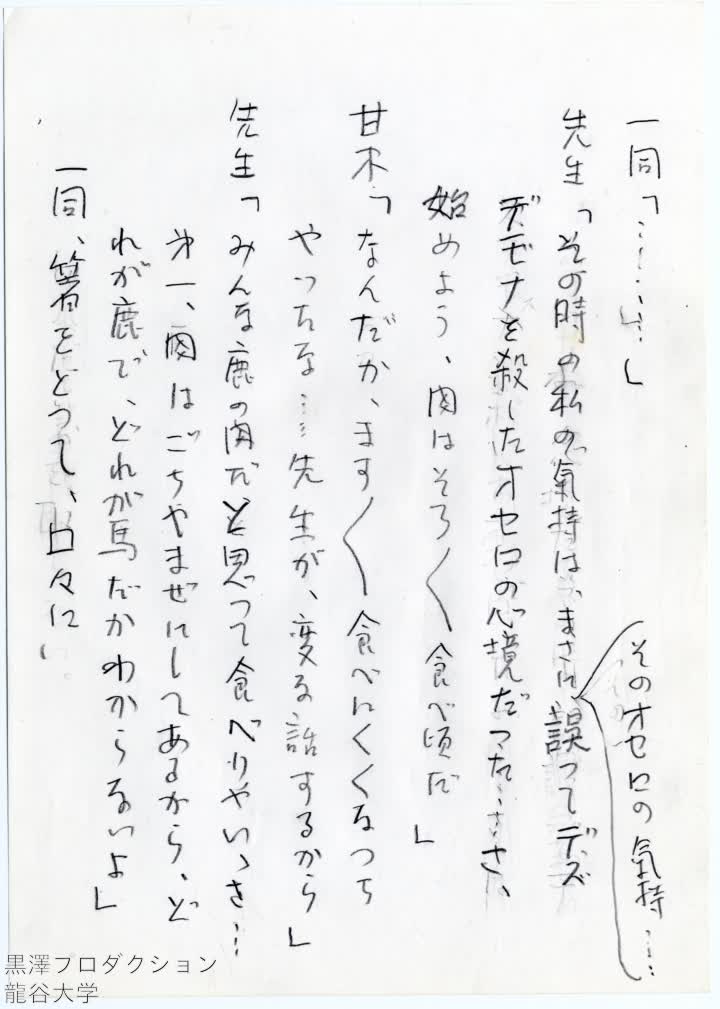 一同「………」
先生「その時の私の氣持は、まさに誤つてデズ
デモナを殺したオセロの心境だつた……さ、
始めよう、肉はそろ〳〵食べ頃だ」
そのオセロの氣持……
甘木「なんだか、ます〳〵食べにくくなつち
やつたな…先生が、変な話するから」
先生「みんな鹿の肉だと思つて食べりやいゝさ…
第一、肉はごちやまぜにしてあるから、ど
れが鹿で、どれが馬だかわからないよ」
一同、箸をとつて、口々に、
黒澤プロダクション
龍谷大学